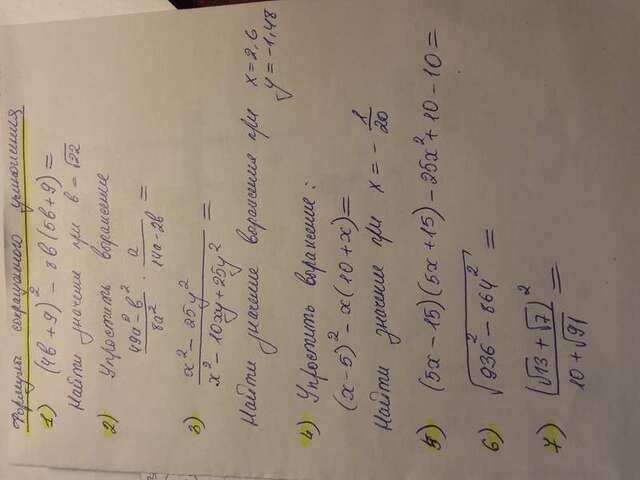 Формулы сокращенного умножения
1) (4b+9)² - 8b(5b+9) =
Найти значение при b = √22
2) Упростить выражение
(49a² - b²)/(8a²) : a/(14a-2b) =
3) (x² - 25y²)/(x² - 10xy + 25y²) =
Найти значение выражения при x = 2,6
y = -1,48
4) Упростить выражение:
(x-5)² - x(10+x) =
Найти значение при x = - 1/20
5) (5x-15)(5x+15) - 25x² + 10 - 10 =
6) √(936² - 864²) =
7) (√13 + √7)²/(10 + √91) =